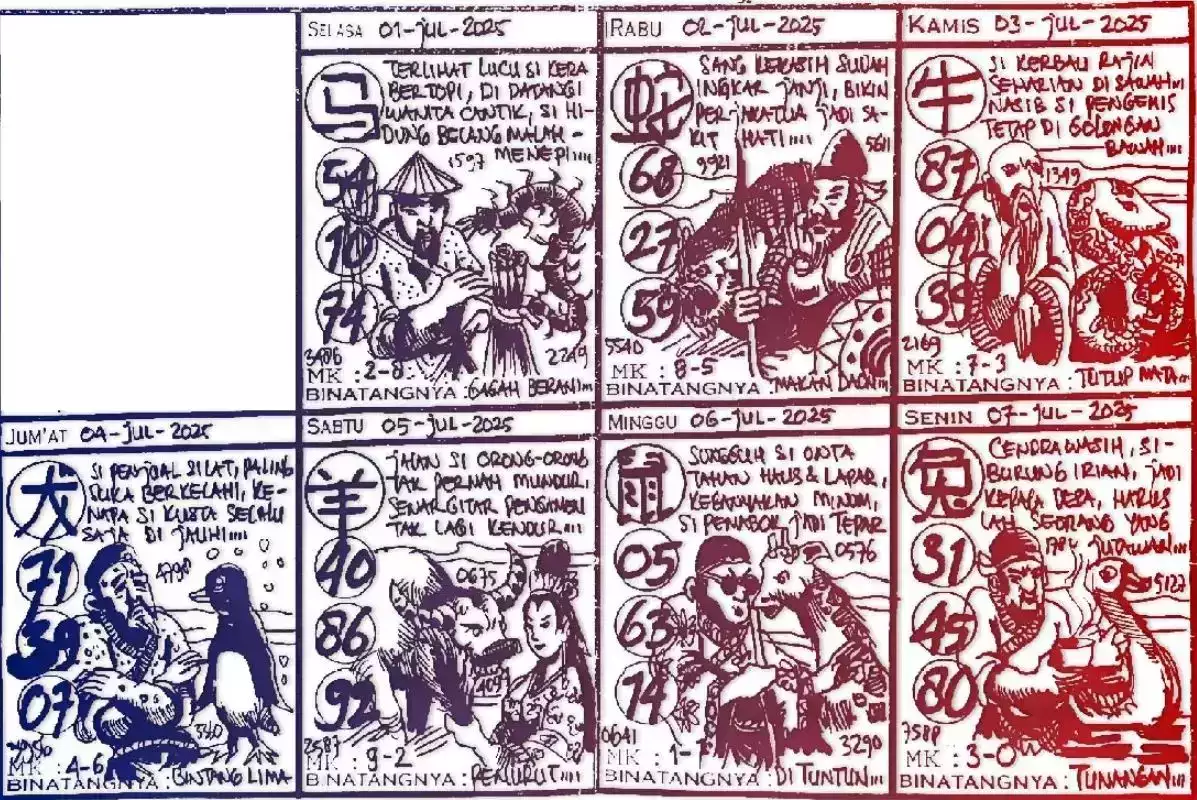 SELASA 01-JUL-2025
马
TERLIHAT LUCU SI KERA
BERTOPI, DI DATANGI
WANITA CANTIK, SI HI-
DUNG BELANG MALAH -
MENEPI....
1597
54
10
74
3486
2249
MK : 2-8
BINATANGNYA : GAGAH BERANI...
RABU 02-JUL-2025
蛇
SANG KEKASIH SUDAH
INGKAR JANJI, BIKIN
PERJAKATUA JADI SA-
KIT HATI....
9921
5611
68
27
59
5540
MK : 8-5
BINATANGNYA : MAKAN DAON...
KAMIS 03-JUL-2025
牛
SI KERBAU RAJIN
SEHARIAN DI SAWAH...
NASIB SI PENGEMIS
TETAP DI GOLONGAN
BAWAH....
1349
87
04
39
5071
2169
MK : 7-3
BINATANGNYA : TUTUP MATA...
JUM'AT 04-JUL-2025
SI PENJUAL SILAT, PALING
SUKA BERKELAHI, KE-
NAPA SI KUSTA SELALU
SAJA DI JAUHI....
4798
71
39
07
MK : 4-6
BINATANGNYA : BINTANG LIMA
SABTU 05-JUL-2025
羊
JALAN SI ORONG-ORONG
TAK PERNAH MUNDUR,
SENAR GITAR PENGAMEN
TAK LAGI KENDUR....
0675
40
86
92
4099
2587
MK : 9-2
BINATANGNYA : PENURUT....
MINGGU 06-JUL-2025
鼠
SUNGGUH SI ONTA
TAHAN HAUS & LAPAR,
KEBANYAKAN MINUM,
SI PENABOK JADI TEPAR
0576
05
63
14
0641
3290
MK : 1-7
BINATANGNYA : DI TUNTUN...
SENIN 07-JUL-2025
兔
CENDRAWASIH, SI-
BURUNG IRIAN, JADI
KEPALA DESA, HARUS
LAH SEORANG YANG
JUTAWAN...
31
9127
45
80
7588
MK : 3-0
BINATANGNYA : TUNANGAN...